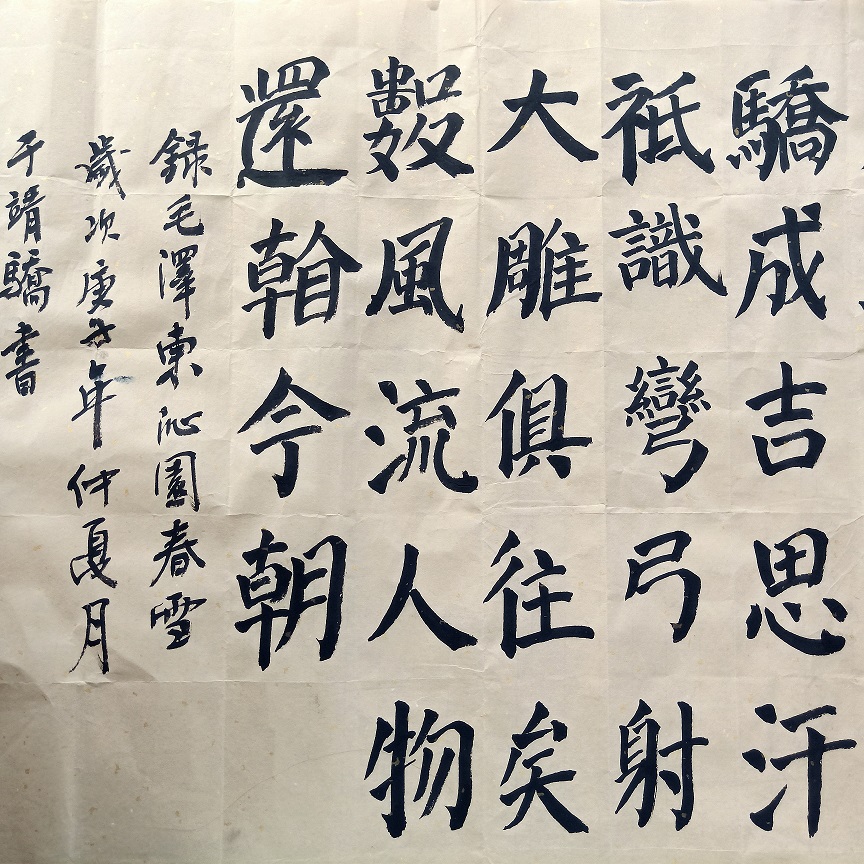 驕成吉思汗
祗識彎弓射
大雕俱往矣
數風流人物
還看今朝
録毛澤東沁園春雪
歲次庚子年仲夏月
于靖驕書